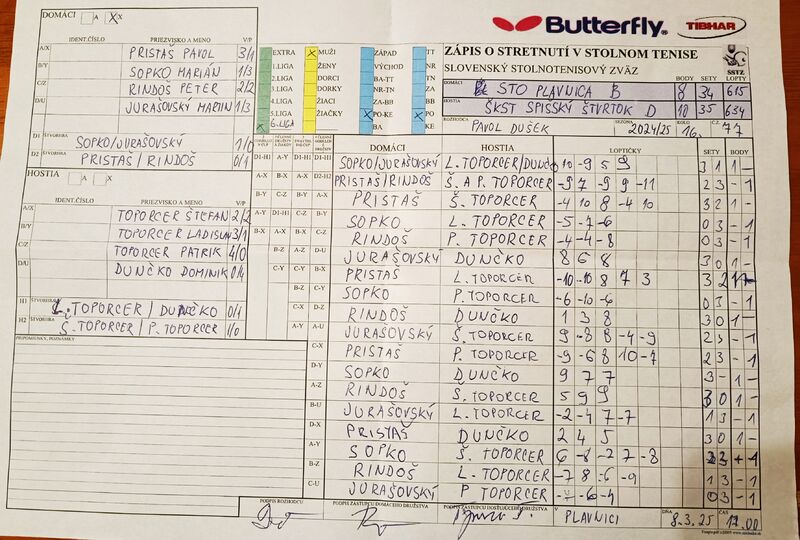 DOMÁCI A X
Butterfly
TIBHAR
IDENT.ČÍSLO PRIEZVISKO A MENO V/P
A/X PRISTAŠ PAVOL 3/1
B/Y SOPKO MARIÁN 1/3
C/Z RINDOŠ PETER 2/2
D/U JURAŠOVSKÝ MARTIN 1/3
D1 ŠTVORHRA SOPKO/JURAŠOVSKÝ 1/0
D2 ŠTVORHRA PRISTAŠ/RINDOŠ 0/1
HOSTIA A X
IDENT.ČÍSLO PRIEZVISKO A MENO V/P
A/X TOPORCER ŠTEFAN 2/2
B/Y TOPORCER LADISLAV 3/1
C/Z TOPORCER PATRIK 4/0
D/U DUNČKO DOMINIK 0/4
H1 ŠTVORHRA L. TOPORCER / DUNČKO 0/1
H2 ŠTVORHRA Š. TOPORCER / P. TOPORCER 1/0
PRIPOMIENKY, POZNÁMKY
EXTRA MUŽI ZÁPAD TT
1.LIGA ŽENY VÝCHOD NR
2.LIGA DORCI BA-TT TN
3.LIGA DORKY TN
4.LIGA ŽIACI ZA-BB BB
5.LIGA ŽIAČKY PO-KE PO
6.LIGA BA KE
ZÁPIS O STRETNUTÍ V STOLNOM TENISE
SLOVENSKÝ STOLNOTENISOVÝ ZVÄZ
SSTZ
BODY SETY LOPTY
DOMÁCI STO PLAVNICA B 8 34 615
HOSTIA ŠKST SPIŠSKÝ ŠTVRTOK D 10 35 634
ROZHODCA PAVOL DUŠEK SEZÓNA 2024/25 KOLO 16. Č.Z. 77
DOMÁCI HOSTIA LOPTIČKY SETY BODY
SOPKO/JURAŠOVSKÝ L. TOPORCER/DUNČKO 10 -9 5 9 3 1 1 -
PRISTAŠ/RINDOŠ Š. A P. TOPORCER -9 7 -9 9 -11 2 3 - 1
PRISTAŠ Š. TOPORCER -4 10 8 -4 10 3 2 1 -
SOPKO L. TOPORCER -5 -7 -6 0 3 - 1
RINDOŠ P. TOPORCER -4 -4 -8 0 3 - 1
JURAŠOVSKÝ DUNČKO 8 6 8 3 0 1 -
PRISTAŠ L. TOPORCER -10 -10 8 7 3 3 2 1 -
SOPKO P. TOPORCER -6 -10 -6 0 3 - 1
RINDOŠ DUNČKO 1 3 8 3 0 1 -
JURAŠOVSKÝ Š. TOPORCER 9 -8 8 -4 -9 2 3 - 1
PRISTAŠ P. TOPORCER -9 -6 8 10 -7 2 3 - 1
SOPKO DUNČKO 9 7 7 3 - 1 -
RINDOŠ Š. TOPORCER 5 9 9 3 0 1 -
JURAŠOVSKÝ L. TOPORCER -2 -4 7 -7 1 3 - 1
PRISTAŠ DUNČKO 2 4 5 3 0 1 -
SOPKO Š. TOPORCER 6 -8 -2 7 -8 2 3 - 1
RINDOŠ L. TOPORCER -7 8 -6 -9 1 3 - 1
JURAŠOVSKÝ P TOPORCER -7 -6 -4 0 3 - 1
PODPIS ROZHODCU PODPIS ZÁSTUPCU DOMÁCEHO DRUŽSTVA PODPIS ZÁSTUPCU HOSŤUJÚCEHO DRUŽSTVA V PLAVNICI DŇA 8.3.25 ČAS 17.00